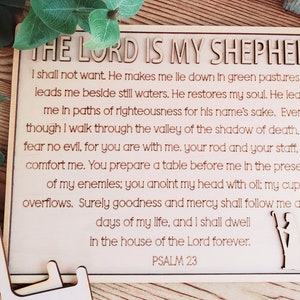 THE LORD IS MY SHEPHE
I shall not want. He makes me lie down in green pastures
leads me beside still waters. He restores my soul. He lea
me in paths of righteousness for his name's sake. Even
though I walk through the valley of the shadow of death,
fear no evil, for you are with me, your rod and your staff,
comfort me. You prepare a table before me in the prese
of my enemies; you anoint my head with oil; my cup
overflows. Surely goodness and mercy shall follow me a
days of my life, and I shall dwell
in the house of the Lord forever.
PSALM 23